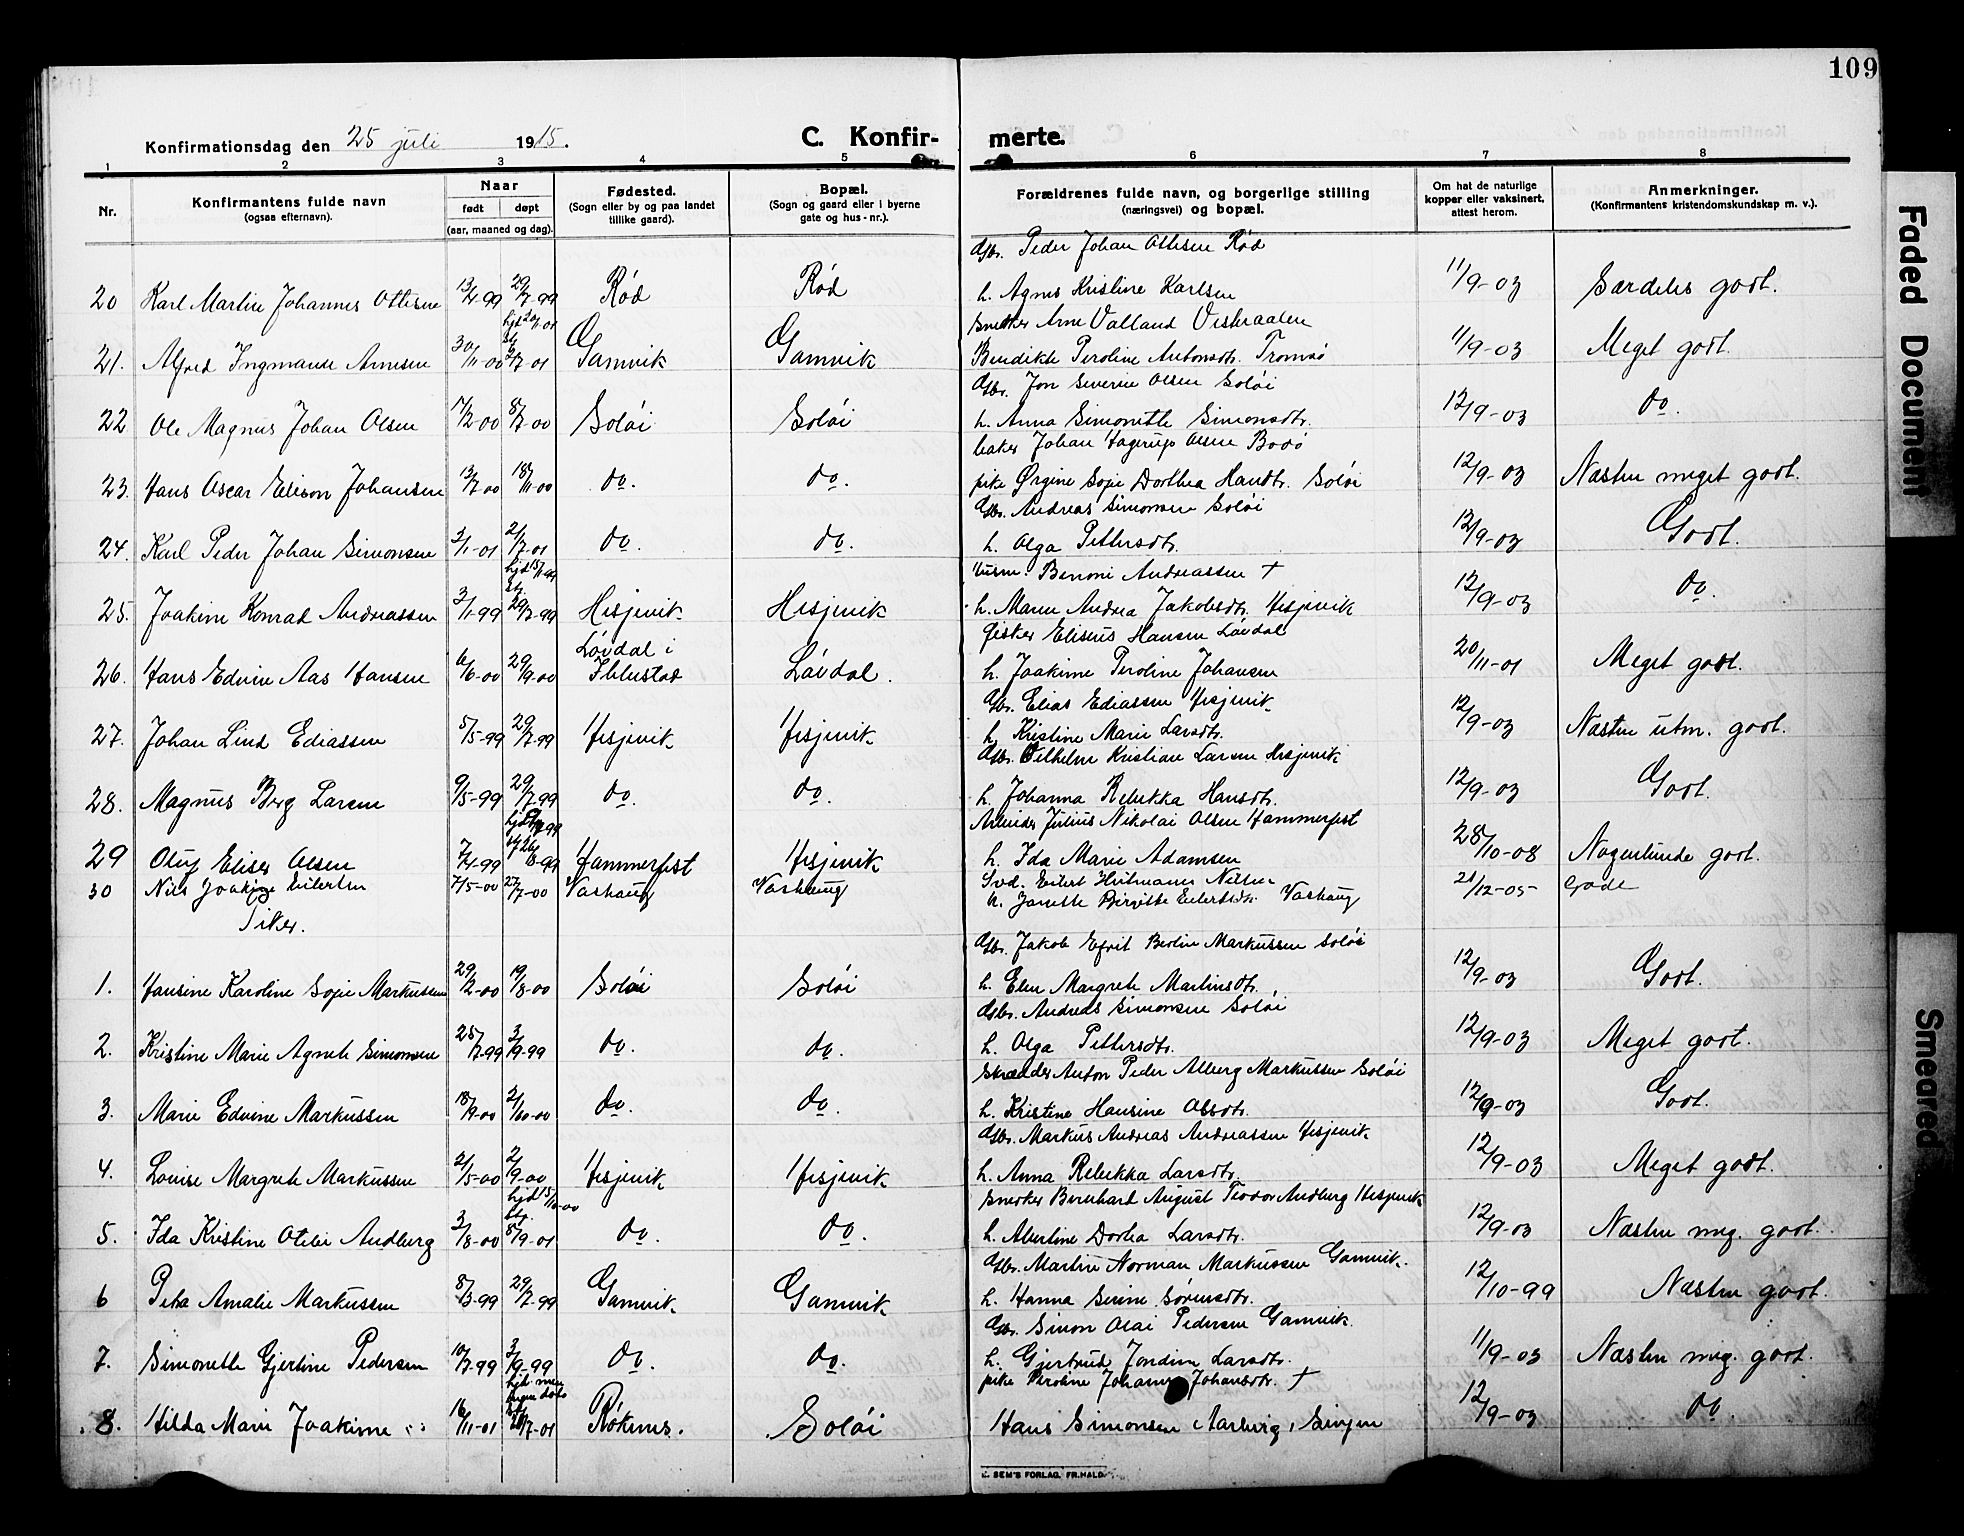 109
Konfirmationsdag den 25 juli 1915.
C. Konfir- merte.
1 2 3 4 5 6 7 8
Nr.
Konfirmantens fulde navn
(ogsaa efternavn).
Naar
født døpt
(aar, maaned og dag).
Fødested.
(Sogn eller by og paa landet
tillike gaard).
Bopæl.
(Sogn og gaard eller i byerne
gate og hus-nr.).
Forældrenes fulde navn, og borgerlige stilling
(næringsvei) og bopæl.
Om hat de naturlige
kopper eller vaksinert,
attest herom.
Anmerkninger.
(Konfirmantens kristendomskundskap m. v.).
Gbr. Peder Johan Ottesen Rød
20 Karl Martin Johannes Ottesen 13/4-99 29/7-99 Rød Rød h. Agnes Kristine Karlsen 11/9-03 Særdeles godt.
Snekker Arne Valland Vesteraalen
21. Alfred Ingmande Arnesen 30/11-00 2/7-01 Gamvik Gamvik Bendikte Peroline Antonsdtr. Tromsø 11/9-03 Meget godt.
Gbr. Jon Severin Olsen Soløi
22 Ole Magnus Johan Olsen 17/2-00 8/7-00 Soløi Soløi h. Anna Simonette Simonsdtr. 12/9-03 do.
baker Johan Hagerup Olsen Bodø
23. Hans Oscar Edison Johansen 13/7-00 18/11-00 do. do. pike Ørgine Sofie Dorthea Hansdtr. Soløi 12/9-03 Næsten meget godt.
Gbr. Andreas Simonsen Soløi
24. Karl Peder Johan Simonsen 3/1-01 2/7-01 do. do. h. Olga Pettersdtr. 12/9-03 Godt.
hjd 15/1-99
Benoni Andreassen †
25. Joakim Konrad Andreassen 3/1-99 29/7-99 Hesjevik Hesjevik h. Maren Andrea Jakobsdtr. Hesjevik 12/9-03 do.
fisker Eliseus Hansen Løvdal
26. Hans Edvin Aas Hansen 6/6-00 29/9-00 Løvdal i Ibbestad Løvdal. h. Joakime Peroline Johansen 20/11-01 Meget godt.
Gbr. Elias Ediassen Hesjevik
27. Johan Lind Ediassen 5/5-99 29/7-99 Hesjevik Hesjevik h. Kristine Marie Larsdtr. 12/9-03 Næsten utm. godt.
Gbr. Vilhelm Kristian Larsen Hesjevik
28. Magnus Berg Larsen 9/5-99 29/7-99 do. do. h. Johanna Rebekka Hansdtr. 12/9-03 Godt.
Arbeider Julius Nikolai Olsen Hammerfest
29 Oluf Eliser Olsen 7/4-99 Hammerfest Hesjevik h. Ida Marie Adamsen 28/10-08 Nogenlunde godt.
30 Nils Joakim Eilertsen 7/5-00 27/7-00 Vashaug Vashaug Gbd. Eilert Hilmann Nilsen 21/12-05- Gode
h. Janette Birgitte Eilertsdtr. Vashaug
Piker.
Gbr. Jakob Efrit Berlin Markussen Soløi
1. Hansine Karoline Sofie Markussen 29/2-00 19/8-00 Soløi Soløi h. Elen Margrete Martinsdtr. 12/9-03 Godt.
Gbr. Andreas Simonsen Soløi
2. Kristine Marie Agnete Simonsen 25/7-99 3/9-99 do. do. h. Olga Pettersdtr. 12/9-03 Meget godt.
Skrædder Anton Peder Alberg Markussen Soløi
3. Marie Edvine Markussen 18/9-00 2/10-00 do. do. h. Kristine Hansine Olsdtr. 12/9-03 Godt.
Gbr. Markus Andreas Andreassen Hesjevik
4. Lovise Margrete Markussen 2/5-00 2/9-00 Hesjevik Hesjevik h. Anna Rebekka Larsdtr. 12/9-03 Meget godt.
Snekker Bernhart August Teodor Andberg Hesjevik
5. Ida Kristine Otelie Andberg 3/8-00 8/9-01 do. do. h. Albertine Dortea Larsdtr. 12/9-03 Næsten meg. godt.
Gbr. Martin Norman Markussen Gamvik.
6 Petra Amalie Markussen 8/3-99 29/7-99 Gamvik Gamvik h. Hanna Serine Sørensdtr. 12/10-99 Næsten godt.
Gbr. Simon Olai Pedersen Gamvik.
7. Simonette Gjertine Pedersen 10/7-99 3/9-99 do. do. h. Gjertrud Jondine Larsdtr. 11/9-03 Næsten meg. godt.
pike Peroline Johanne Johansdtr. †
8. Hilda Marie Joakime 16/11-01 Røknes. Soløi Hans Simonsen Aarberg, Senjen 12/9-03 do.
SEM'S FORLAG, FR.HALD.
Faded Document
Smeared